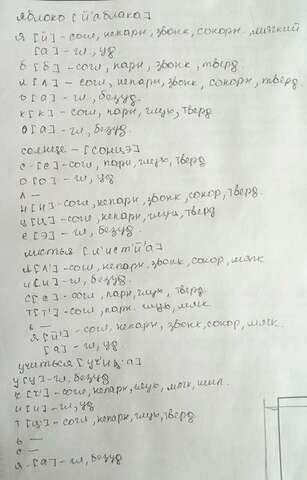 яблоко [й'аблака]
я [й'] - согл, непарн, звонк, сонорн. мягкий
[а] - гл, уд
б [б] - согл, парн, звонк, тверд.
л [л] - согл, непарн, звонк, сонорн, тверд.
о [а] - гл, безуд.
к [к] - согл, парн, глух, тверд
о [а] - гл, безуд.
солнце - [сонцэ]
с - [с] - согл, парн, глух, тверд
о [о] - гл, уд.
л —
н [н] - согл, непарн, звонк, сонор, тверд.
ц [ц] - согл, непарн, глух, тверд
е [э] - гл, безуд.
листья [л'ист'й'а]
л [л'] - согл, непарн, звонк, сонор, мягк.
и [и] - гл, безуд.
с [с] - согл, парн, глух, тверд
т [т'] - согл, парн. глух, мягк
ь —
я [й'] - согл, непарн, звонк, сонор, мягк.
[а] - гл, уд.
учиться [уч'иц а]
у [у] - гл, безуд
ч [ч'] - согл, непарн, глух, мягк, шип.
и [и] - гл, уд
т [ц] - согл, непарн, глух, тверд.
ь —
с —
я - [а] - гл, безуд